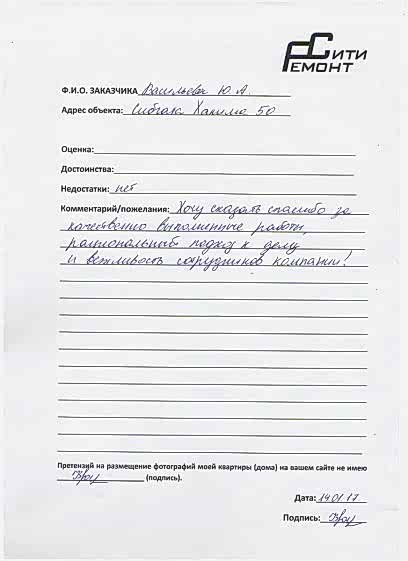 Сити
Ремонт
Ф.И.О. ЗАКАЗЧИКА Васильева Ю. А.
Адрес объекта: Сибгата Хакима 50
Оценка:
Достоинства:
Недостатки: нет
Комментарий/пожелания: Хочу сказать спасибо за
качественно выполненные работы,
рациональный подход к делу
и вежливость сотрудников компании!
Претензий на размещение фотографий моей квартиры (дома) на вашем сайте не имею
(подпись).
Дата: 14.01.17
Подпись: